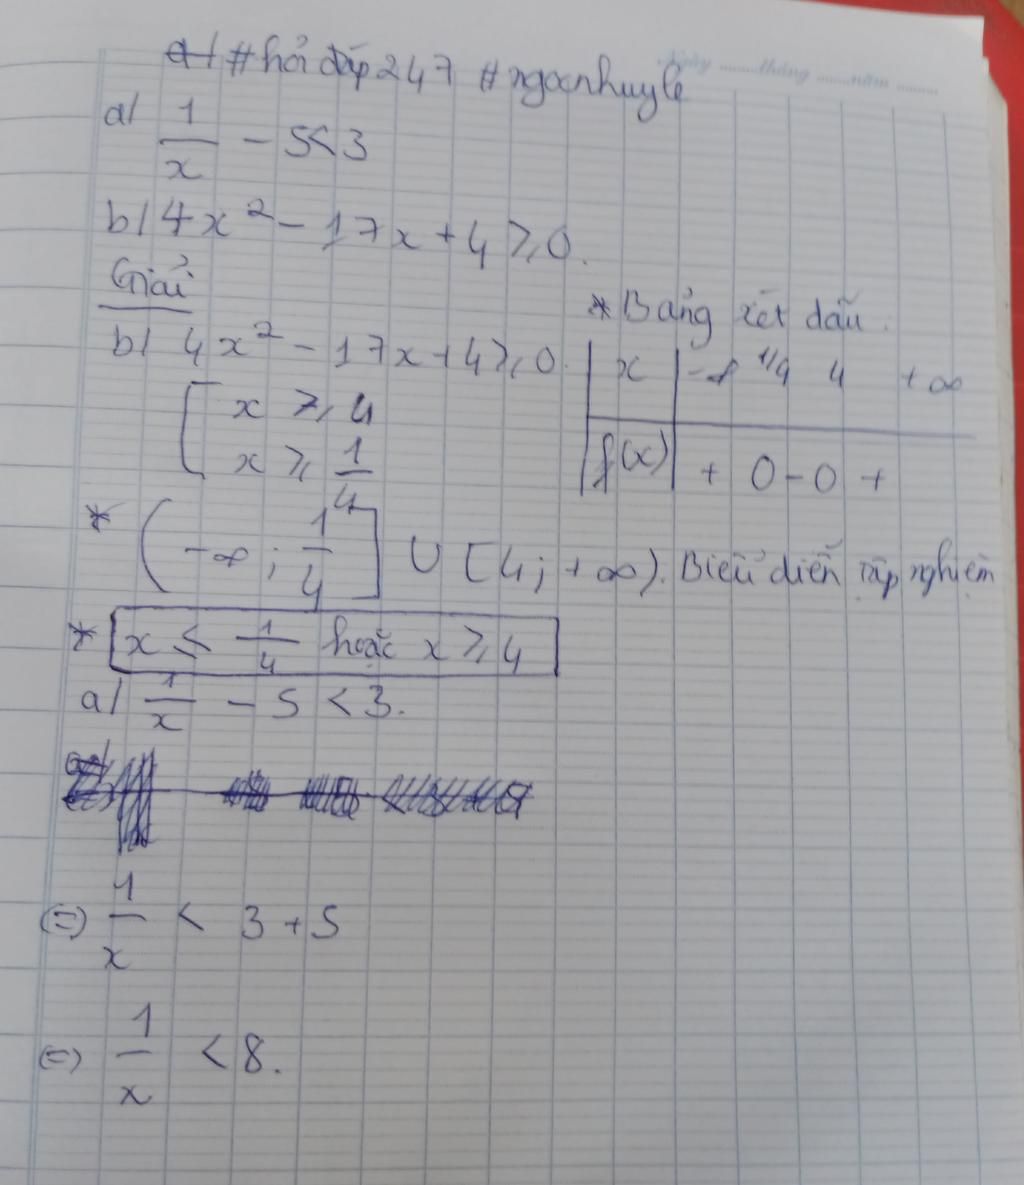 a/ #hỏi đáp247 #ngocnhuyle
Ngày ........ tháng ........ năm ........
a/ 1/x - 5 < 3
b/ 4x² - 17x + 4 ≥ 0.
Giải
b/ 4x² - 17x + 4 ≥ 0
[ x ≥ 4
x ≥ 1/4
* Bảng xét dấu.
x | -∞ 1/4 4 +∞
f(x) | + 0 - 0 +
* (-∞; 1/4] ∪ [4; +∞). Biểu diễn tập nghiệm
* x ≤ 1/4 hoặc x ≥ 4
a/ 1/x - 5 < 3.
(=) 1/x < 3 + 5
(=) 1/x < 8.